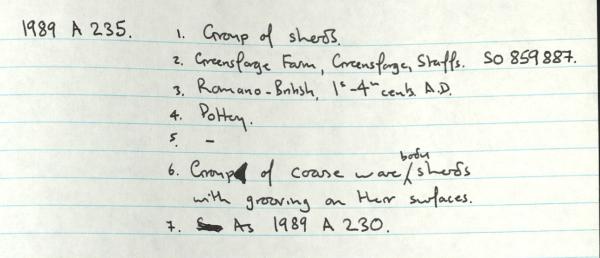 1989 A 235. 1. Group of sherds.
2. Greensforge Farm, Greensforge, Staffs. SO 859887.
3. Romano-British, 1st-4th cents. A.D.
4. Pottery.
5. -
6. Group of coarse ware body sherds
with grooving on their surfaces.
7. As 1989 A 230.